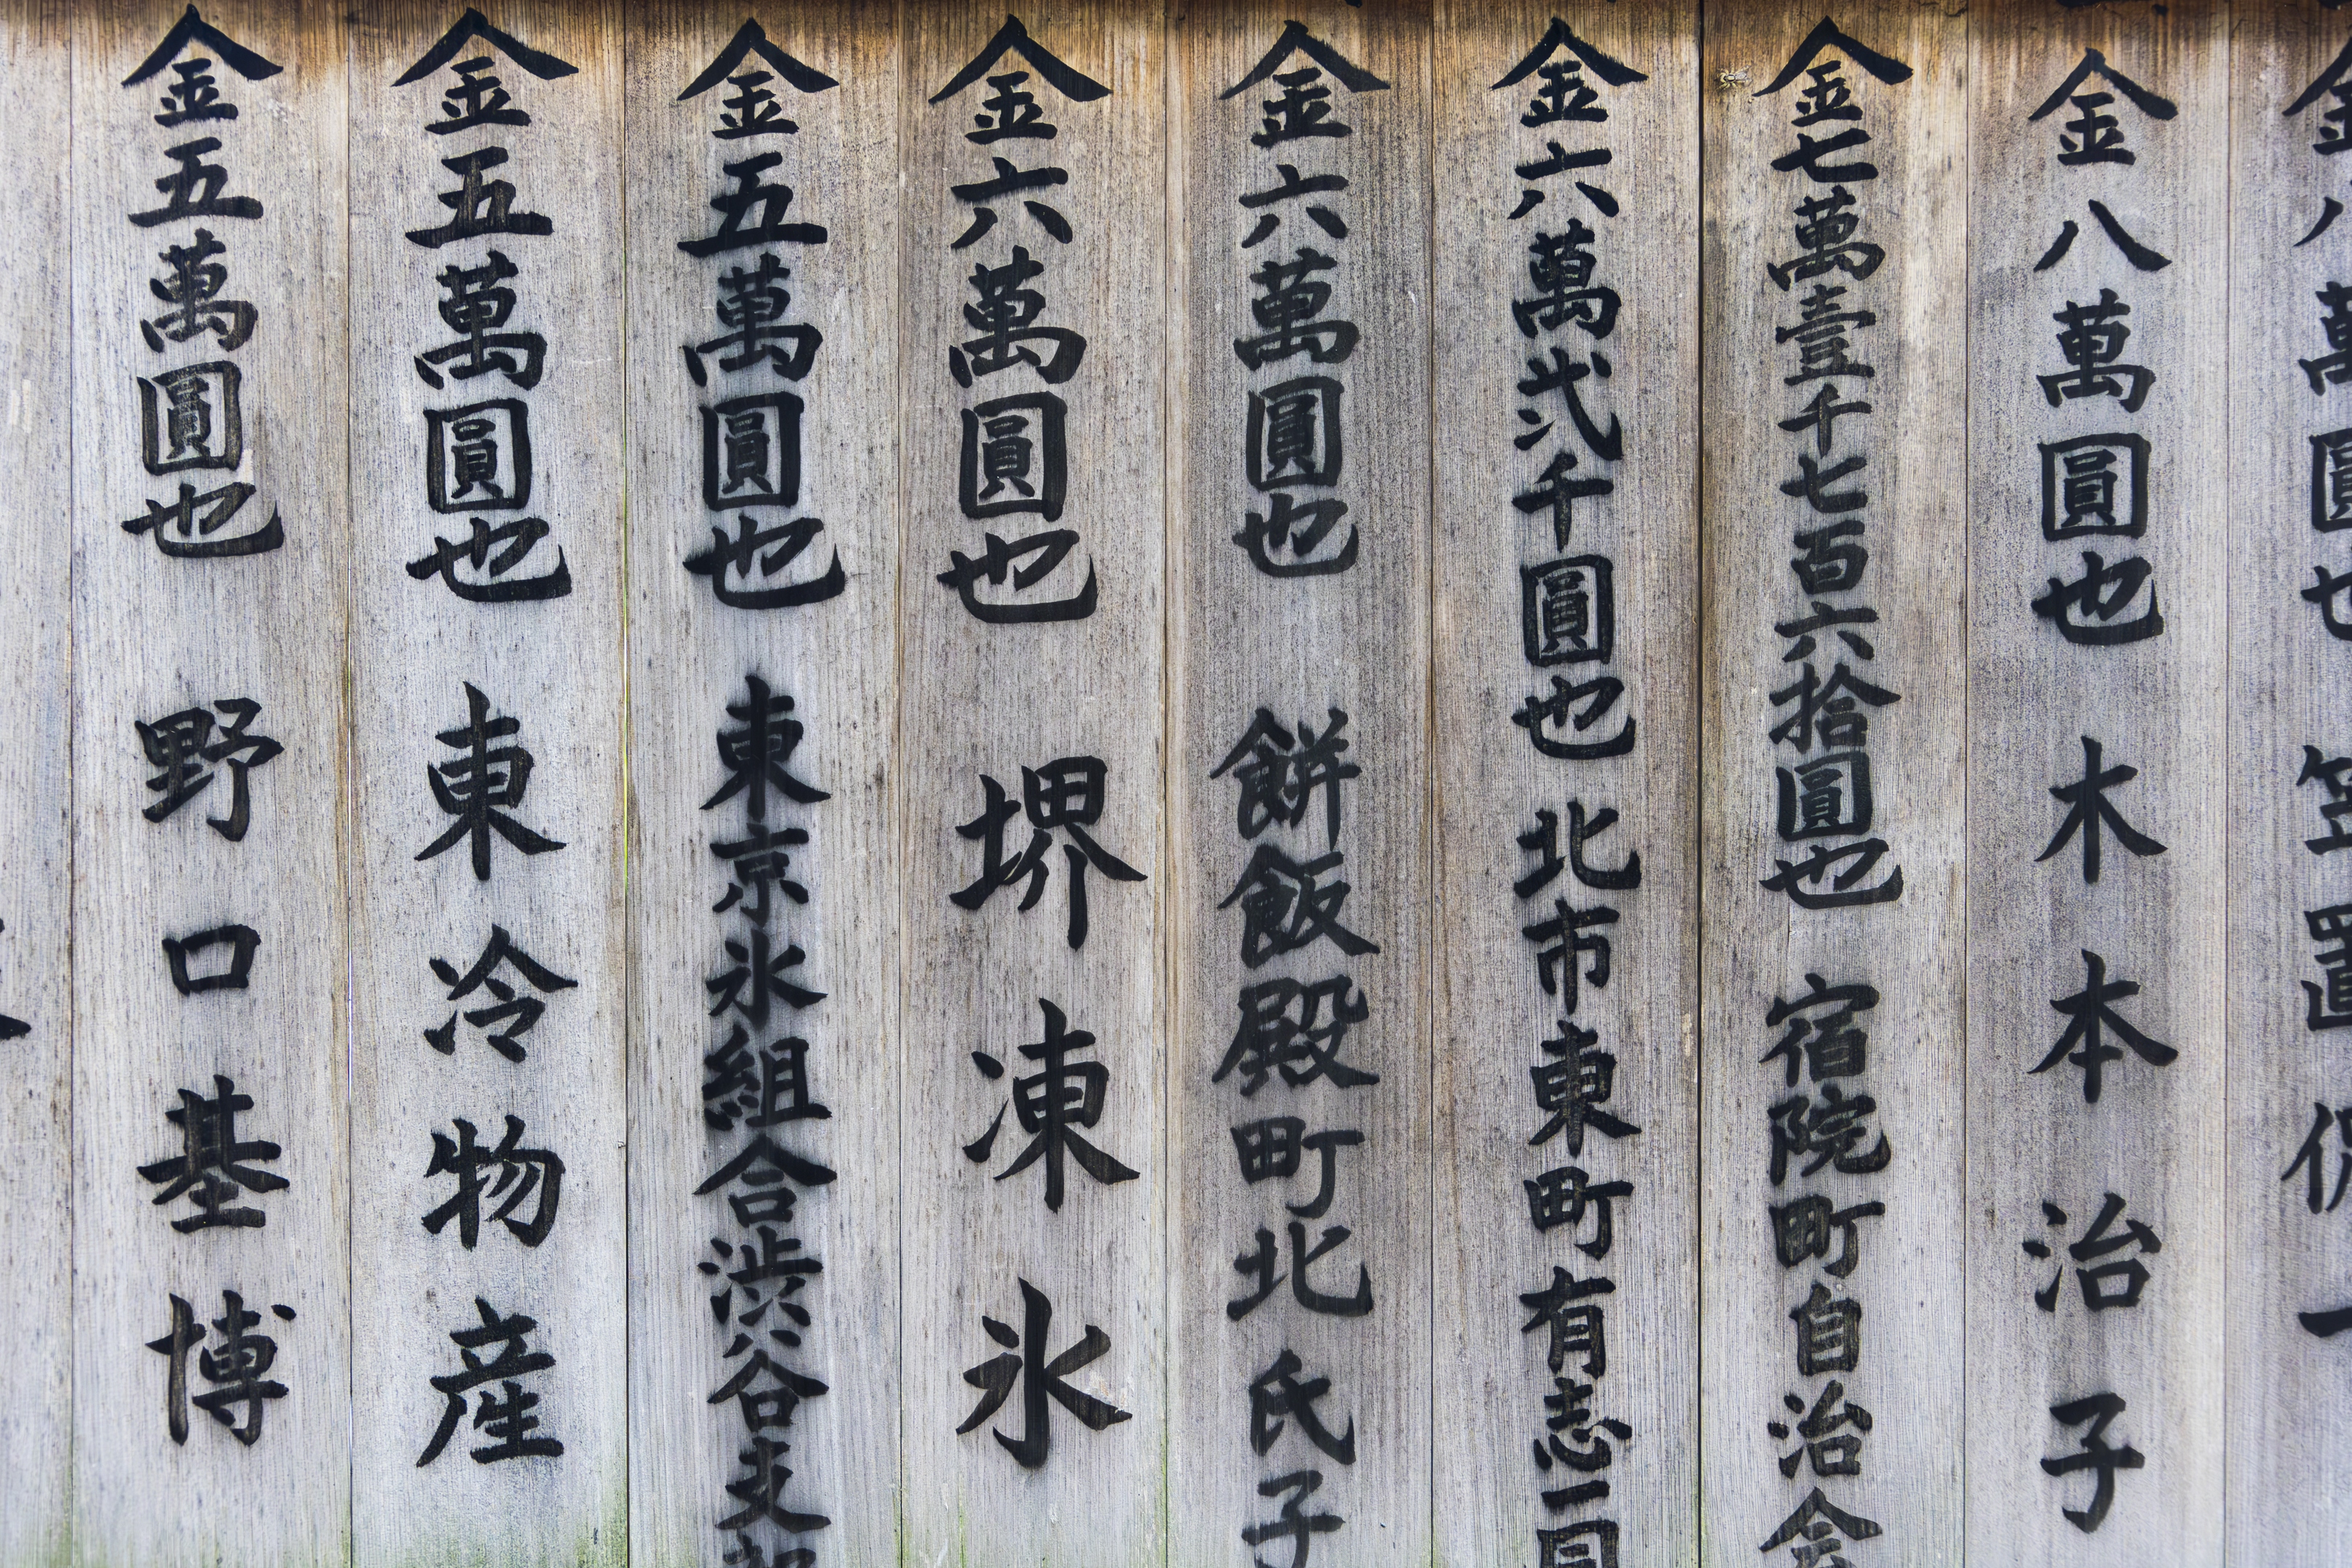 金八萬圓也 木本治子
金七萬壹千七百六拾圓也 宿院町自治会
金六萬弐千圓也 北市東町有志一同
金六萬圓也 餅飯殿町北氏子
金六萬圓也 堺凍氷
金五萬圓也 東京氷組合渋谷支部
金五萬圓也 東冷物産
金五萬圓也 野口基博